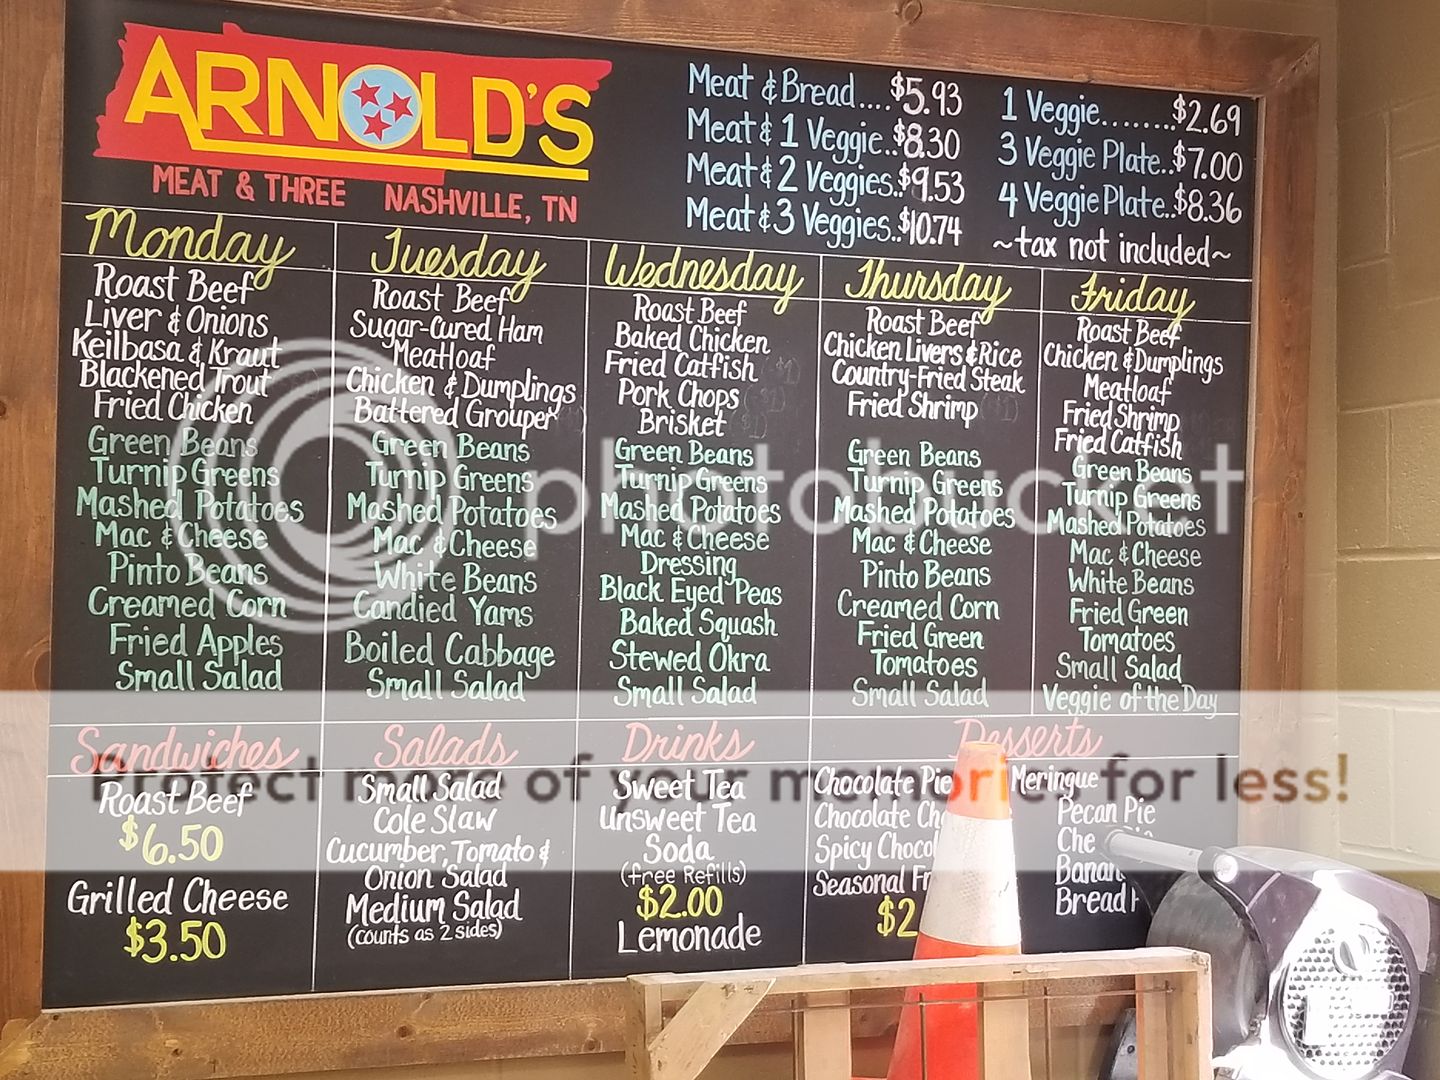 ARNOLD'S
MEAT & THREE NASHVILLE, TN
Meat & Bread....$5.93
Meat & 1 Veggie..$8.30
Meat & 2 Veggies..$9.53
Meat & 3 Veggies..$10.74
1 Veggie........$2.69
3 Veggie Plate..$7.00
4 Veggie Plate..$8.36
~tax not included~
Monday
Roast Beef
Liver & Onions
Keilbasa & Kraut
Blackened Trout
Fried Chicken
Green Beans
Turnip Greens
Mashed Potatoes
Mac & Cheese
Pinto Beans
Creamed Corn
Fried Apples
Small Salad
Tuesday
Roast Beef
Sugar-Cured Ham
Meatloaf
Chicken & Dumplings
Battered Grouper
Green Beans
Turnip Greens
Mashed Potatoes
Mac & Cheese
White Beans
Candied Yams
Boiled Cabbage
Small Salad
Wednesday
Roast Beef
Baked Chicken
Fried Catfish
Pork Chops
Brisket
Green Beans
Turnip Greens
Mashed Potatoes
Mac & Cheese
Dressing
Black Eyed Peas
Baked Squash
Stewed Okra
Small Salad
Thursday
Roast Beef
Chicken Livers & Rice
Country-Fried Steak
Fried Shrimp
Green Beans
Turnip Greens
Mashed Potatoes
Mac & Cheese
Pinto Beans
Creamed Corn
Fried Green
Tomatoes
Small Salad
Friday
Roast Beef
Chicken & Dumplings
Meatloaf
Fried Shrimp
Fried Catfish
Green Beans
Turnip Greens
Mashed Potatoes
Mac & Cheese
White Beans
Fried Green
Tomatoes
Small Salad
Veggie of the Day
Sandwiches
Roast Beef
$6.50
Grilled Cheese
$3.50
Salads
Small Salad
Cole Slaw
Cucumber, Tomato &
Onion Salad
Medium Salad
(counts as 2 sides)
Drinks
Sweet Tea
Unsweet Tea
Soda
(free Refills)
$2.00
Lemonade
Desserts
Chocolate Pie Meringue
Chocolate
Spicy
Seasonal
$2
Pecan Pie
Bread
photobucket
Protect more of your memories for less!